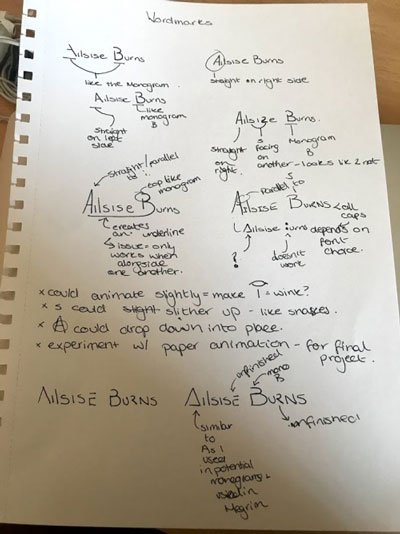 Wordmarks
Ailsise Burns
like the Monogram.
Ailsise Burns
straight on right side
Ailsise Burns
straight
on left
side
like
monogram
B
Ailsise Burns.
straight
on
right.
s
facing
on
another - looks like 2 not
s
Monogram
B
straight/parallel
to
cap like
monogram
Ailsise Burns
creates
an underline
issue = only
works when
alongside
one another.
parallel to
AILSISE BURNS
all
caps
Ailsise :urns
depends on
font
choice.
?
doesn't
work
× could animate slightly = make I = wink?
× s could slight slither up - like snakes.
× A could drop down into place.
× experiment w/ paper animation - for final
project.
AILSISE BURNS
unfinished
mono
B
AILSISE BURNS
unfinished!
similar
to
As I
used
in potential
monograms
used in